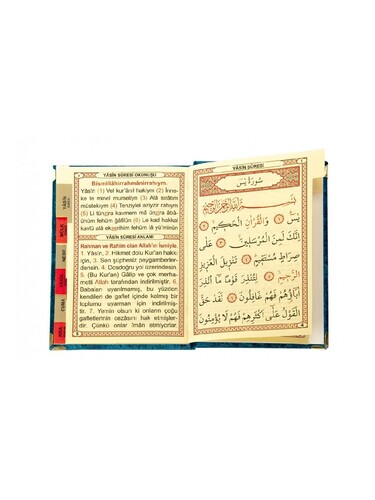 YÂSÎN SÛRESİ OKUNUŞU
Bismillâhirrahmânirrahıym.
Yâsîn (1) Vel kur'ânil hakiym (2) İnne-
ke le minel murseliyn (3) Alâ sırâtım
müstekiym (4) Tenziylel aziyzir rahıym
(5) Li tünzira kavmem mâ ünzira âbâ-
ünühüm fehüm ğâfilûn (6) Le kad hakkul
kavlü alâ ekserihim fehüm lâ yü'minûn
YÂSÎN SÛRESİ ANLAMI
Rahman ve Rahîm olan Allah'ın İsmiyle.
1. Yâsîn, 2. Hikmet dolu Kur'an hakkı
için, 3. Sen şüphesiz peygamberler-
densin. 4. Dosdoğru yol üzerindesin
5. (Bu Kur'an) Çok güçlü ve çok mer-
hametli Allah tarafından indirilmiştir. 6.
Babaları uyarılmamış, bu yüzden
kendileri de gaflet içinde kalmış bir
toplumu uyarman için indirilmiştir.
7. Yemin olsun ki onların çoğu
gafletlerinin cezâsını hak etmişler-
dir. Çünkü onlar îman etmiyorlar.
YÂSÎN
MÜLK
NEBE
CUMA
YÂSÎN SÛRESİ
سُورَةُ يٰسٓ
بِسْمِ اللّٰهِ الرَّحْمٰنِ الرَّحِيمِ
يٰسٓ ﴿١﴾ وَالْقُرْاٰنِ الْحَكِيمِ ﴿٢﴾
اِنَّكَ لَمِنَ الْمُرْسَلِينَ ﴿٣﴾ عَلٰى
صِرَاطٍ مُسْتَقِيمٍ ﴿٤﴾ تَنْزِيلَ الْعَزِيزِ
الرَّحِيمِ ﴿٥﴾ لِتُنْذِرَ قَوْمًا مَٓا اُنْذِرَ
اٰبَٓاؤُهُمْ فَهُمْ غَافِلُونَ ﴿٦﴾ لَقَدْ حَقَّ
الْقَوْلُ عَلٰٓى اَكْثَرِهِمْ فَهُمْ لَا يُؤْمِنُونَ